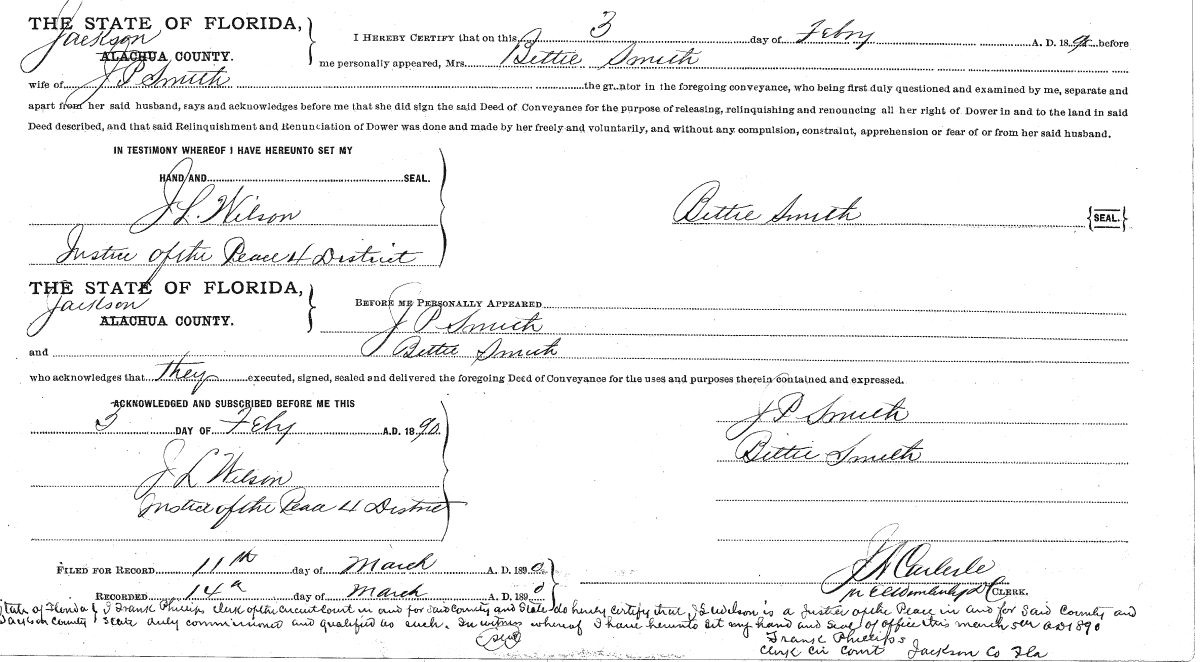 THE STATE OF FLORIDA,
Jackson
ALACHUA COUNTY.
I HEREBY CERTIFY that on this 3 day of Feby A. D. 1890 before
me personally appeared, Mrs. Bettie Smith
wife of J P Smith the grantor in the foregoing conveyance, who being first duly questioned and examined by me, separate and
apart from her said husband, says and acknowledges before me that she did sign the said Deed of Conveyance for the purpose of releasing, relinquishing and renouncing all her right of Dower in and to the land in said
Deed described, and that said Relinquishment and Renunciation of Dower was done and made by her freely and voluntarily, and without any compulsion, constraint, apprehension or fear of or from her said husband.
IN TESTIMONY WHEREOF I HAVE HEREUNTO SET MY
HAND AND SEAL.
J. L. Wilson
Justice of the Peace 4 District
Bettie Smith {SEAL.}
THE STATE OF FLORIDA,
Jackson
ALACHUA COUNTY.
BEFORE ME PERSONALLY APPEARED
J P Smith
and Bettie Smith
who acknowledges that they executed, signed, sealed and delivered the foregoing Deed of Conveyance for the uses and purposes therein contained and expressed.
ACKNOWLEDGED AND SUBSCRIBED BEFORE ME THIS
3 DAY OF Feby A.D. 1890.
J L Wilson
Justice of the Peace 4 District
J P Smith
Bettie Smith
FILED FOR RECORD 11th day of March A. D. 1890
RECORDED 14 day of March A. D. 1890
J A Carlisle
CLERK.
State of Florida } I Frank Phillips Clerk of the Circuit Court in and for said County and State do hereby certify that J L Wilson is a Justice of the Peace in and for said County and
Jackson County } State duly commissioned and qualified as such. In witness whereof I have hereunto set my hand and seal of office this march 5th AD 1890
(Seal) Frank Phillips
Clerk Cir Court Jackson Co Fla